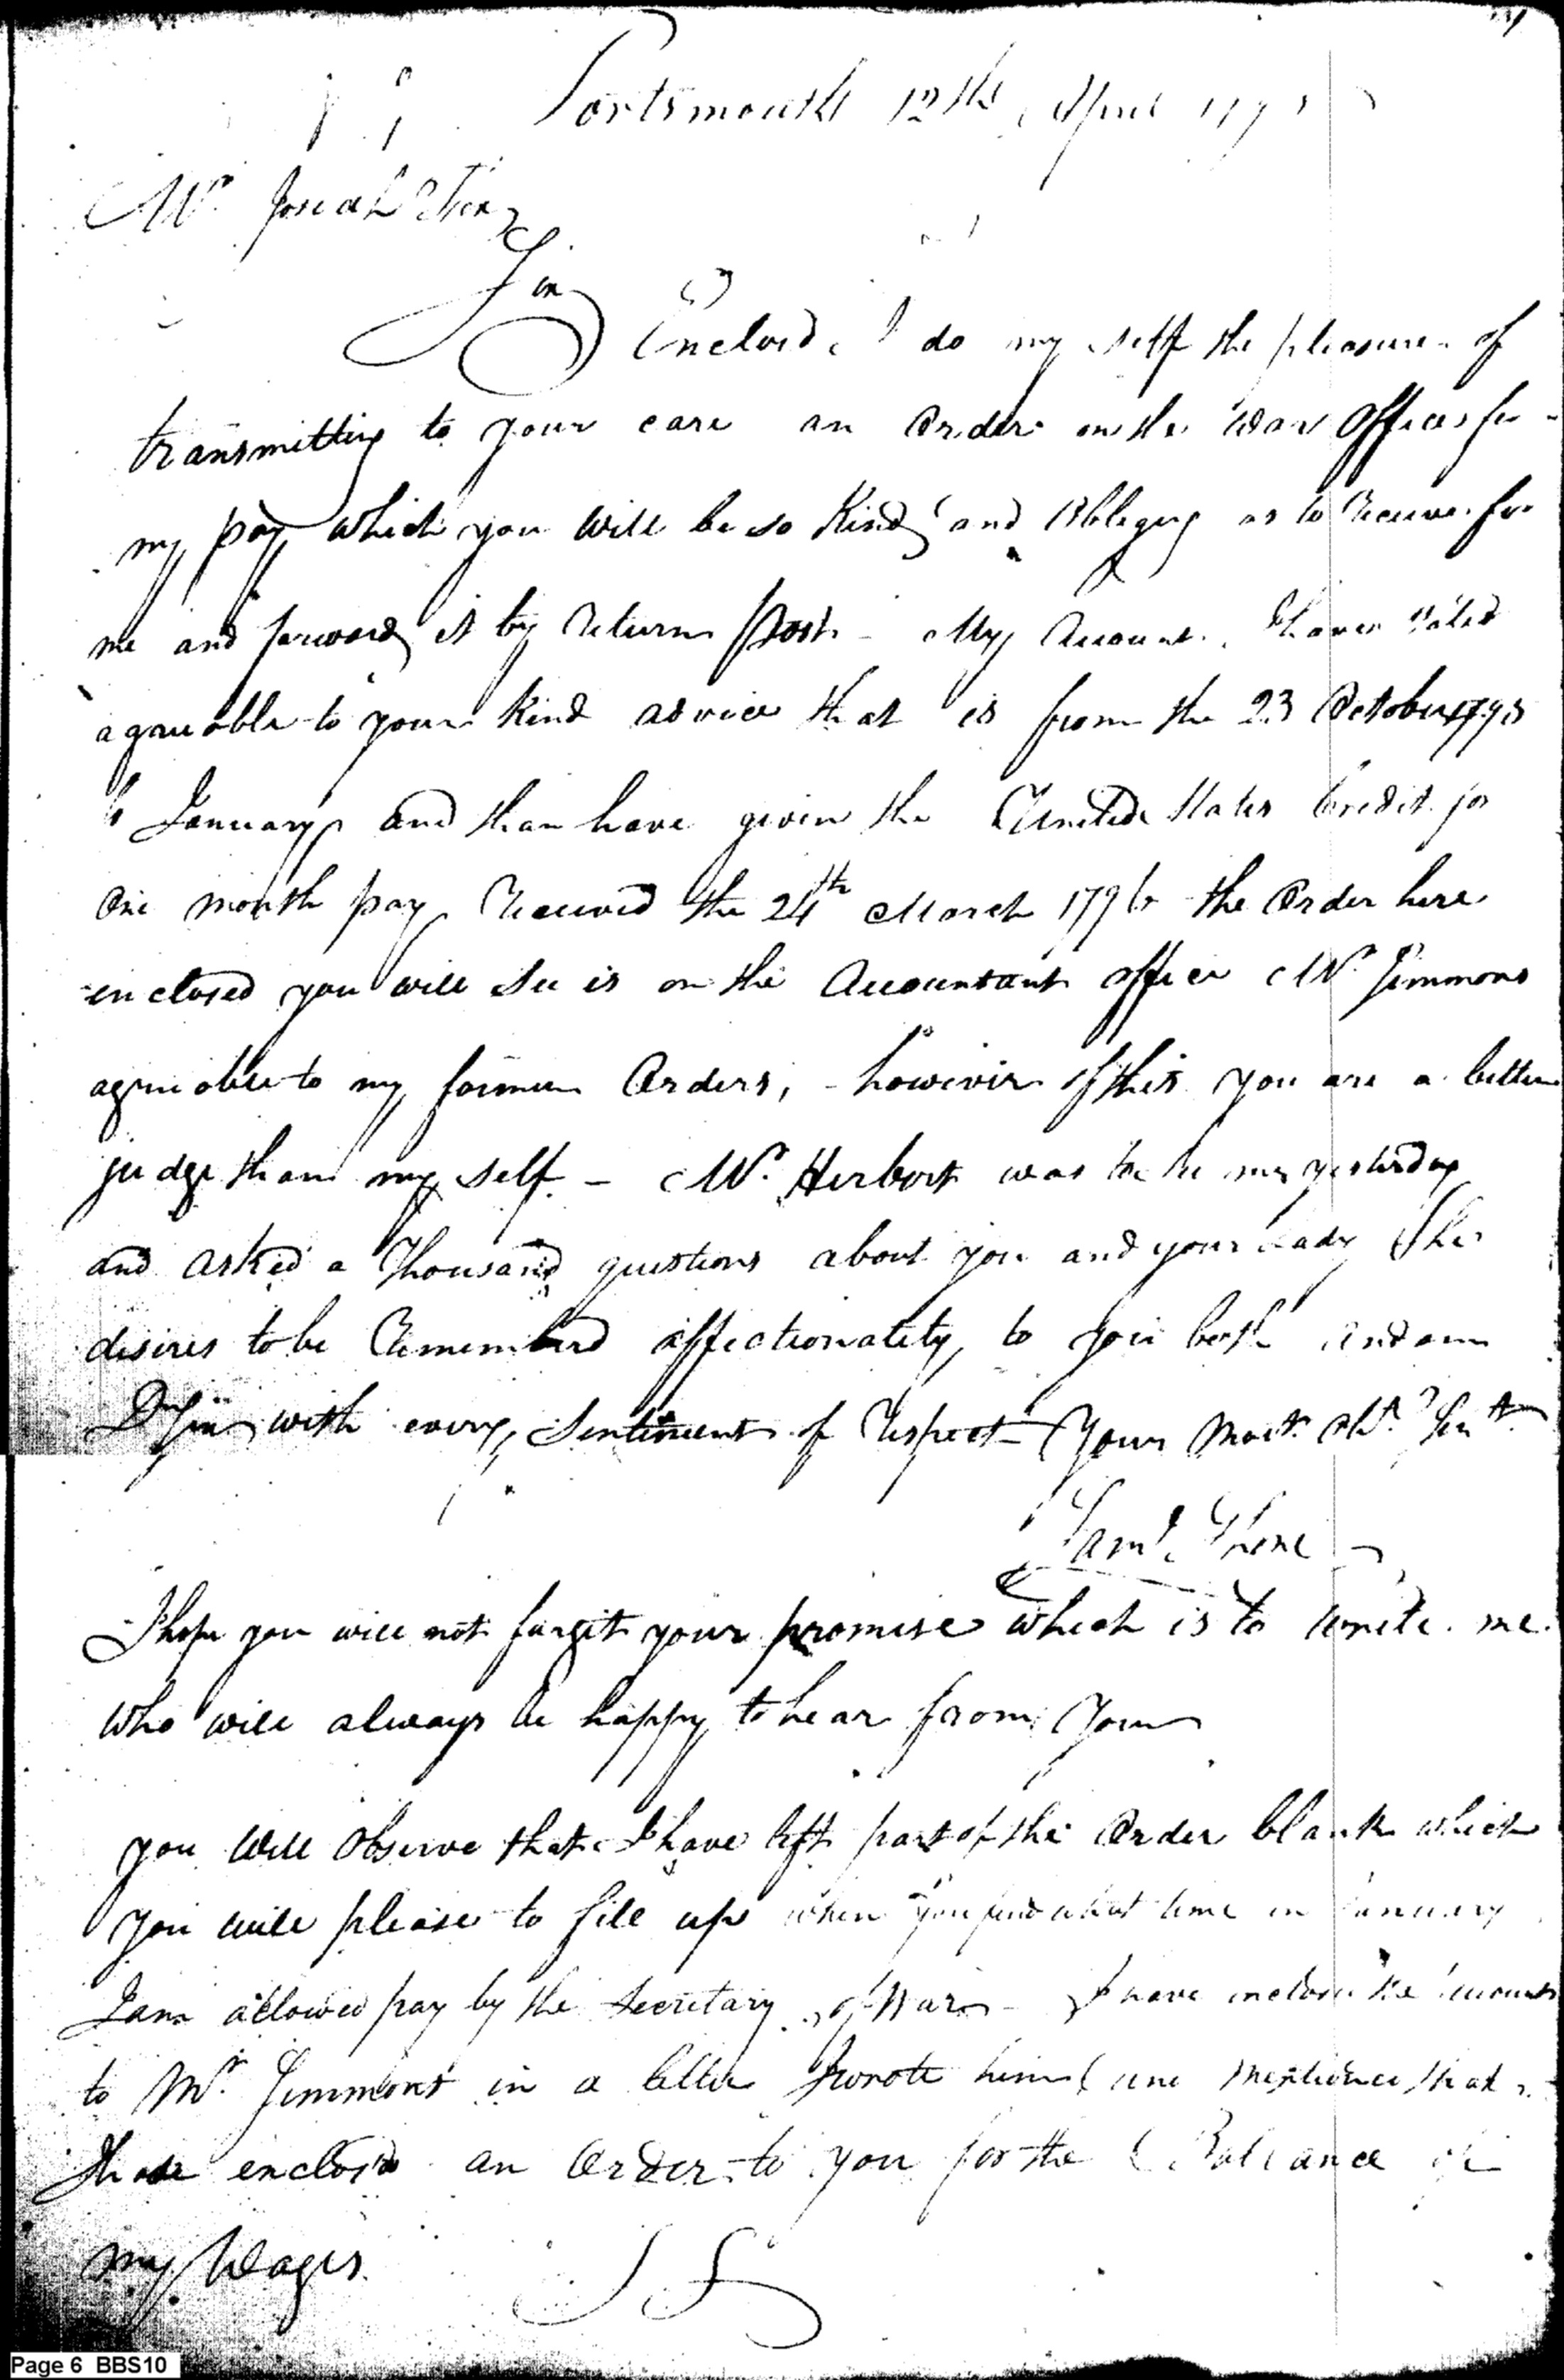 Portsmouth 12th April 179
Mr. Josiah Fox
Sir
Enclosd I do my self the pleasure of
transmitting to your care an Order on the War Office for
my pay which you will be so Kind and Obligeing as to Receive for
me and forward it by Return Post - My Account I have
agreeable to your kind advice that is from the 23 October 1795
to January and than have given the United States Credit for
One month pay Received the 24th March 1796 the Order here
enclosed you will See is on the Accountant office Mr. Simmons
agreeable to my former Orders, - however of this you are a better
judge than my self - Mr. Herbert was to see me yesterday
and asked a Thousand questions about you and your Lady She
desires to be Remembard affectionately to you both and am
Dr Sir with every Sentiment of Respect - Your Most Obt. Sert.
Saml.
I hope you will not forgit your promise which is to write me
who will always be happy to hear from You
you Will Observe that I have left part of the Order blank which
you will please to fill up when you find what time in January
I am allowed pay by the Secretary of War - I have inclosd the account
to Mr. Simmons in a letter I wrote him and mentioned that
I have enclosd an Order to you for the Ballance of
my Wages.
Page 6 BBS10